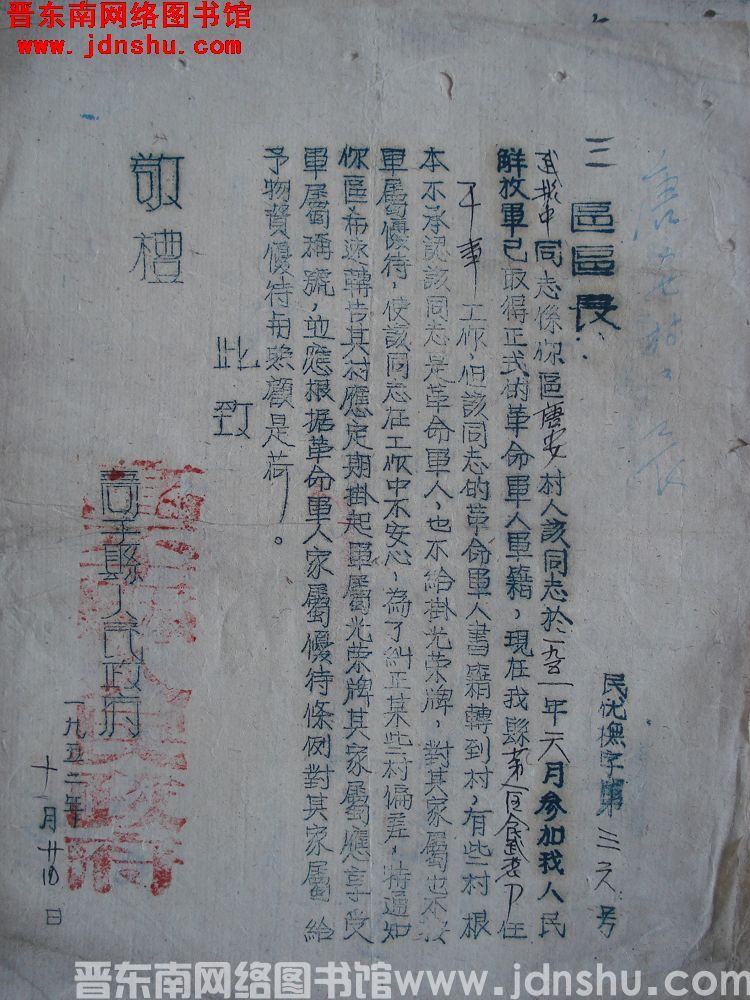 晋东南网络图书馆
www.jdnshu.com
民优撫字第三六号
三區區長：
同志係你區唐安村人該同志於一九五一年六月参加我人民
解放軍已取得正式的革命軍人軍籍，現在我縣任
干事工作，但該同志的革命軍人書籍轉到村，有些村根
本不承認該同志是革命軍人，也不給掛光荣牌，對其家屬也不按
軍屬優待，使該同志在工作中不安心，為了糾正某些村偏差，特通知
你區希速轉告其村應定期掛起軍屬光荣牌其家屬應享受
軍屬稱號，並應根据革命軍人家屬優待條例對其家屬給
予物質優待与照顧是荷。
此致
敬禮
高平縣人民政府
一九五二年十一月廿日
晋东南网络图书馆www.jdnshu.com